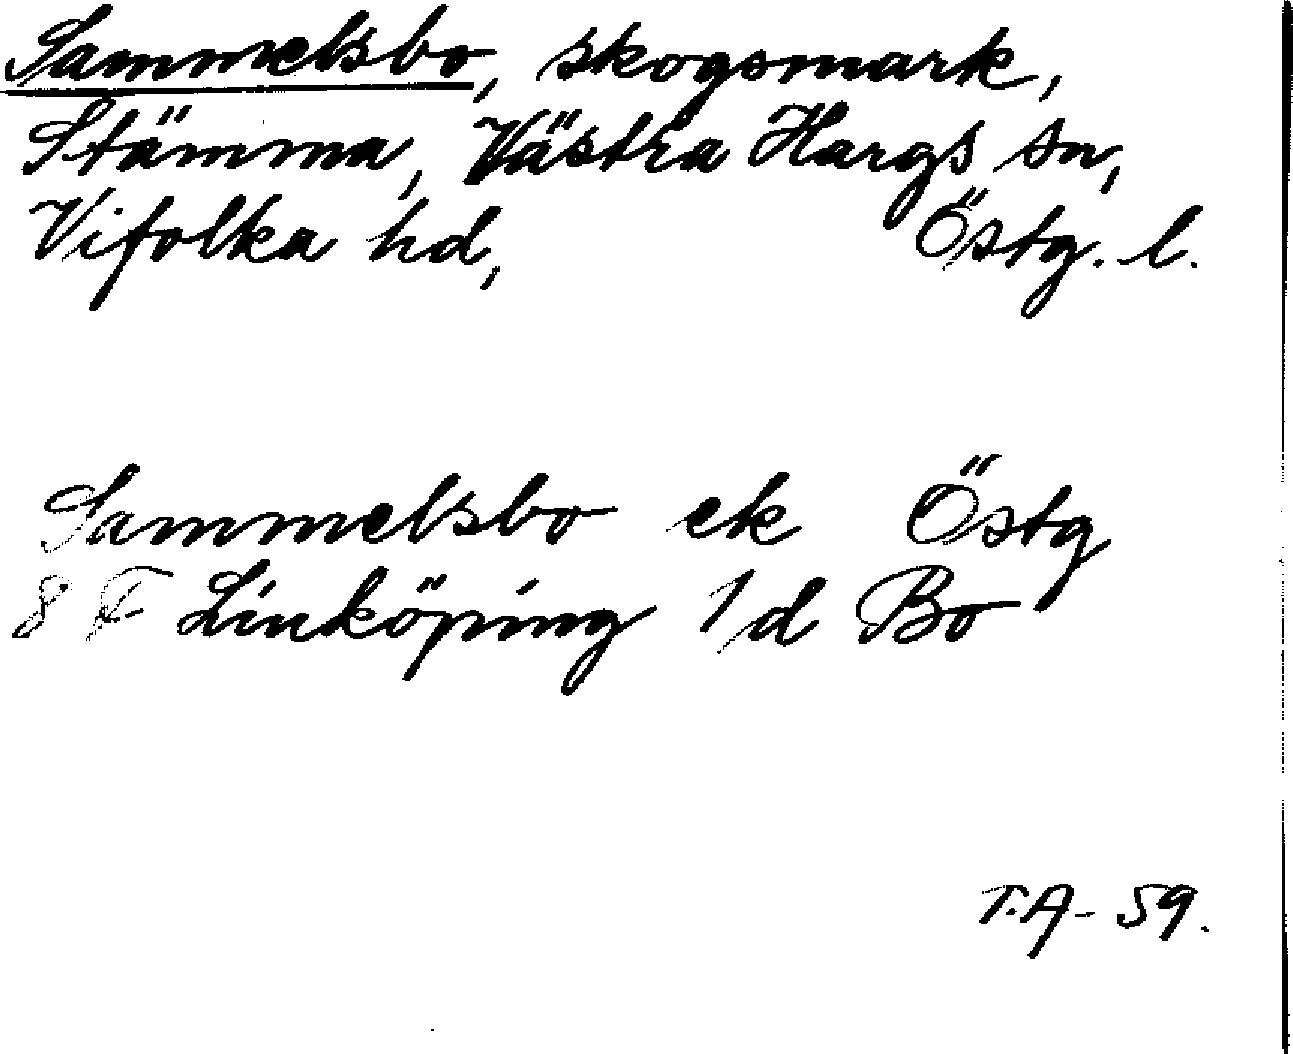 Sammelsbo, skogsmark,
Stämma, Västra Hargs sn,
Vifolka hd, Östg. l.
Sammelsbo ek Östg
8 F Linköping 1 d Bo
T.A-59.